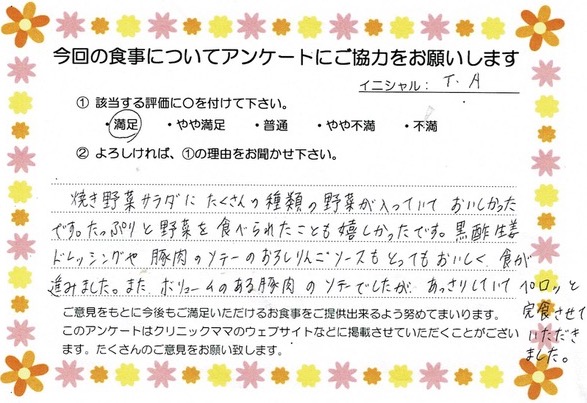 今回の食事についてアンケートにご協力をお願いします
イニシャル： T. A
① 該当する評価に○を付けて下さい。
・満足 ・やや満足 ・普通 ・やや不満 ・不満
② よろしければ、①の理由をお聞かせ下さい。
焼き野菜サラダに たくさんの種類の野菜が入っていて おいしかった
です。たっぷりと野菜を食べられたことも嬉しかったです。黒酢生姜
ドレッシングや 豚肉のソテーのおろしりんごソースもとってもおいしく 食が
進みました。また、ボリュームのある豚肉のソテでしたが、あっさりしていて ペロッと
完食させて
いただき
ました。
ご意見をもとに今後もご満足いただけるお食事をご提供出来るよう努めてまいります。
このアンケートはクリニックママのウェブサイトなどに掲載させていただくことがござい
ます。たくさんのご意見をお願い致します。